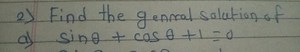 2) Find the general solution of
a) sinθ + cosθ + 1 = 0